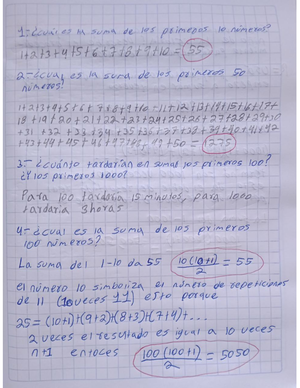 1-¿cuál es la suma de los primeros 10 números?
1+2+3+4+5+6+7+8+9+10 = 55
2-¿cual es la suma de los primeros 50
números?
1+2+3+4+5+6+7+8+9+10+11+12+13+14+15+16+17+
18+19+20+21+22+23+24+25+26+27+28+29+30
+31+32+33+34+35+36+37+38+39+40+41+42
+43+44+45+46+47+48+49+50= 1275
3-¿cuánto tardarían en sumar los primeros 100?
¿Y los primeros 1000?
Para 100 tardaría 15 minutos, para 1000
tardaría 3horas
4-¿cual es la suma de los primeros
100 números?
La suma del 1-10 da 55 10(10+1)/2 = 55
el número 10 simboliza el número de repeticiones
de 11 (10 veces 11) esto porque
25=(10+1)+(9+2)+(8+3)+(7+4)+...
2 veces el resultado es igual a 10 veces
n+1 entoces 100(100+1)/2 = 5050